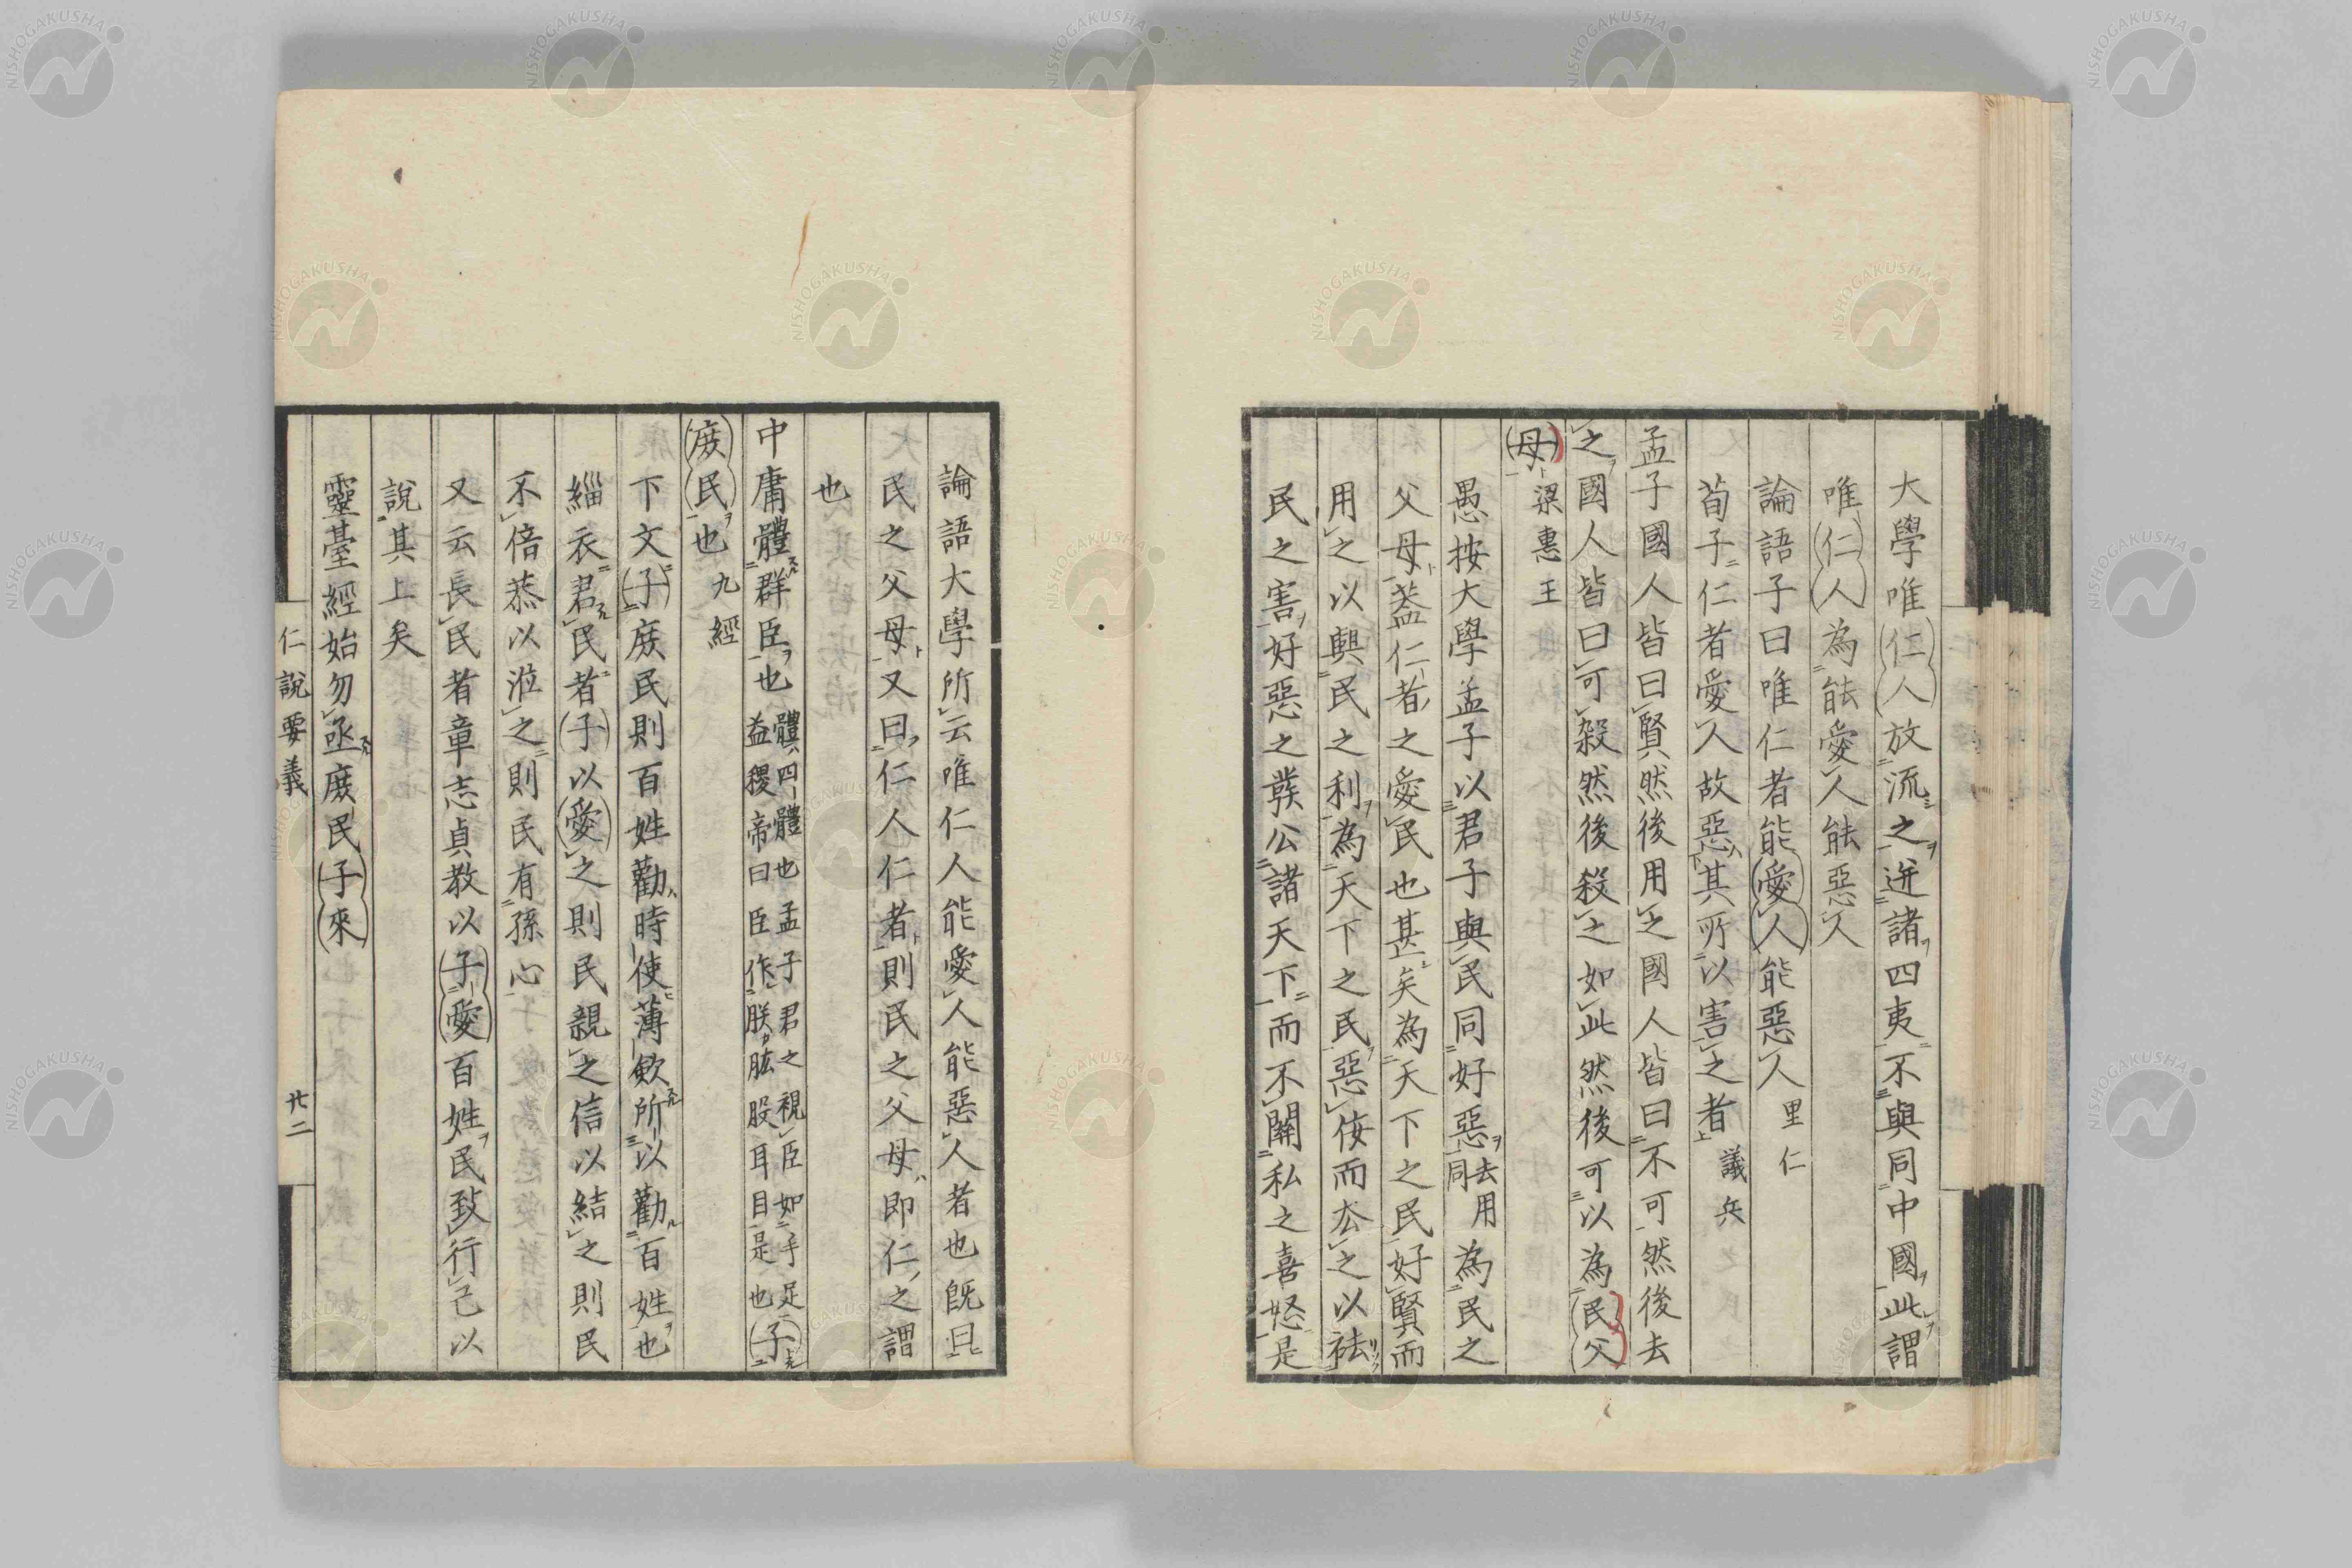 大學唯仁人放流之迸諸四夷不與同中國此謂
唯仁人為能愛人能惡人
論語子曰唯仁者能愛人能惡人里仁
荀子仁者愛人故惡其所以害之者議兵
孟子國人皆曰賢然後用之國人皆曰不可然後去
之國人皆曰可殺然後殺之如此然後可以為民父
母梁惠王
愚按大學孟子以君子與民同好惡去用同為民之
父母蓋仁者之愛民也甚矣為天下之民好賢而
用之以興民之利為天下之民惡侫而厺之以祛
民之害好惡之發公諸天下而不關私之喜怒是
論語大學所云唯仁人能愛人能惡人者也既且
民之父母又曰仁人仁者則民之父母即仁之謂
也
中庸體群臣也體四體也孟子君之視臣如手足
益稷帝曰臣作朕肱股耳目是也子
庻民也九經
下文子庻民則百姓勸時使薄斂所以勸百姓也
緇衣君民者子以愛之則民親之信以結之則民
不倍恭以涖之則民有孫心
又云長民者章志貞教以子愛百姓民致行己以
說其上矣
靈臺經始勿亟庻民子來
仁說要義
廿二
NISHOGAKUSHA